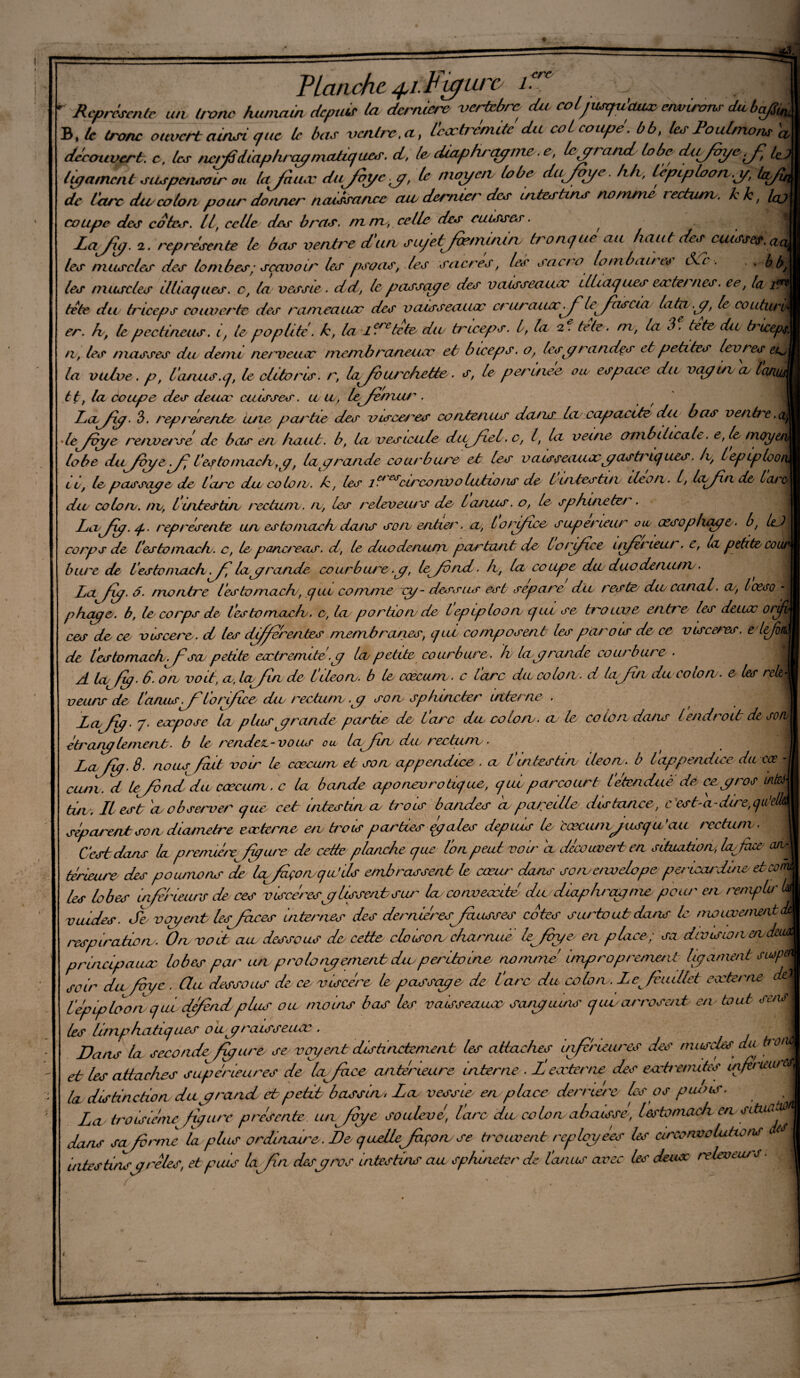 Planche 41. Figure 1.ere
Représente un tronc humain depuis la derniere vertebre du col jusqu'aux environs du baſsin.
B, le tronc ouvert ainsi que le bas ventre. a, l'extrémité du col coupé. bb, les Poulmons a
découvert. c, les nerfs diaphragmatiques. d, le diaphragme. e, le grand lobe du foye, f, le
ligament suspensoir ou la faux du foye g, le moyen lobe du foye. h h, l'epiploon, y, la fin
de l'arc du colon pour donner naissance au dernier des intestins nommé rectum. k k, la
coupe des côtes. ll, celle des bras. m m, celle des cuisses.
La fig. 2. représente le bas ventre d'un sujet fœminin tronqué au haut des cuisses. a a,
les muscles des lombes; sçavoir les psoas, les sacrés, les sacro lombaires &c. . . b b,
les muscles illiaques. c, la vessie. dd, le passage des vaisseaux illiaques externes. ee, la 1ere
tête du triceps couverte des rameaux des vaisseaux cruraux. f le fascia lata. g, le couturi-
er. h, le pectineus. i, le poplité. k, la 1ere tête du triceps. l, la 2e tête. m, la 3e tête du triceps.
n, les masses du demi nerveux membraneux et biceps. o, les grandes et petites levres
la vulve. p, l'anus. q, le clitoris. r, la fourchette. s, le perinée ou espace du vagin a l'anus
tt, la coupe des deux cuisses. u u, le fémur.
La fig. 3. représente une partie des visceres contenus dans la capacité du bas ventre. a,
le foye renversé de bas en haut. b, la vesicule du fiel. c, l, la veine ombilicale. e, le moyen
lobe du foye. f l'estomach, g, la grande courbure et les vaisseaux gastriques. h, l'epiploon
ii, le passage de l'arc du colon. k, les 1eres circonvolutions de l'intestin ileon. l, la fin de l'arc
du colon. m, l'intestin rectum. n, les releveurs de l'anus. o, le sphincter.
La fig. 4. représente un estomach dans son entier. a, l'orifice supérieur ou œsophage. b, le
corps de l'estomach. c, le pancreas. d, le duodenum partant de l'orifice inférieur. e, la petite cour-
bure de l'estomach, f, la grande courbure. g, le fond. h, la coupe du duodenum.
La fig. 5. montre l'estomach, qui comme cy-dessus est séparé du reste du canal. a, l'œso-
phage. b, le corps de l'estomach. c, la portion de l'epiploon qui se trouve entre les deux orifi-
ces de ce viscere. d les différentes membranes, qui composent les parois de ce visceres. e le fond
de l'estomach. f sa petite extremité. g la petite courbure. h la grande courbure.
A la fig. 6. on voit, a, la fin de l'ileon. b le cœcum. c l'arc du colon. d la fin du colon. e les rele-
veurs de l'anus. f l'orifice du rectum. g son sphincter interne.
La fig. 7. expose la plus grande partie de l'arc du colon. a le colon dans l'endroit de son
étranglement. b le rendez-vous ou la fin du rectum.
La fig. 8. nous fait voir le cœcum et son appendice. a l'intestin ileon. b l'appendice du cœ-
cum. d le fond du cœcum. c la bande aponevrotique, qui parcourt l'étendue de ce gros intes-
tin. Il est a observer que cet intestin a trois bandes a pareille distance, c'est-a-dire, qu'elles
séparent son diametre externe en trois parties égales depuis le cœcum jusqu'au rectum.
C'est dans la premiére figure de cette planche que l'on peut voir a découvert en situation, la face an-
térieure des poumons de la façon qu'ils embrassent le cœur dans son envelope pericardine et com
les lobes inférieurs de ces viscéres glissent sur la convexité du diaphragme pour en remplir les
vuides. Se voyent les faces internes des derniéres fausses côtes surtout dans le mouvement de
respiration. On voit au dessous de cette cloison charnue le foye en place; sa division en deux
principaux lobes par un prolongement du peritoine nommé improprement ligament suspen
soir du foye. Au dessous de ce viscére le passage de l'arc du colon. Le feuillet externe de
l'épiploon qui défend plus ou moins bas les vaisseaux sanguins qui arrosent en tout sens
les limphatiques ou graisseux.
Dans la seconde figure se voyent distinctement les attaches inférieures des muscles du tronc
et les attaches supérieures de la face antérieure interne. L'externe des extremités inférieures,
la distinction du grand et petit bassin. La vessie en place derriére les os pubis.
La troisiéme figure présente un foye soulevé, l'arc du colon abaissé, l'estomach en situation
dans sa forme la plus ordinaire. De quelle façon se trouvent reployées les circonvolutions des
intestins grêles, et puis la fin des gros intestins au sphincter de l'anus avec les deux releveurs.